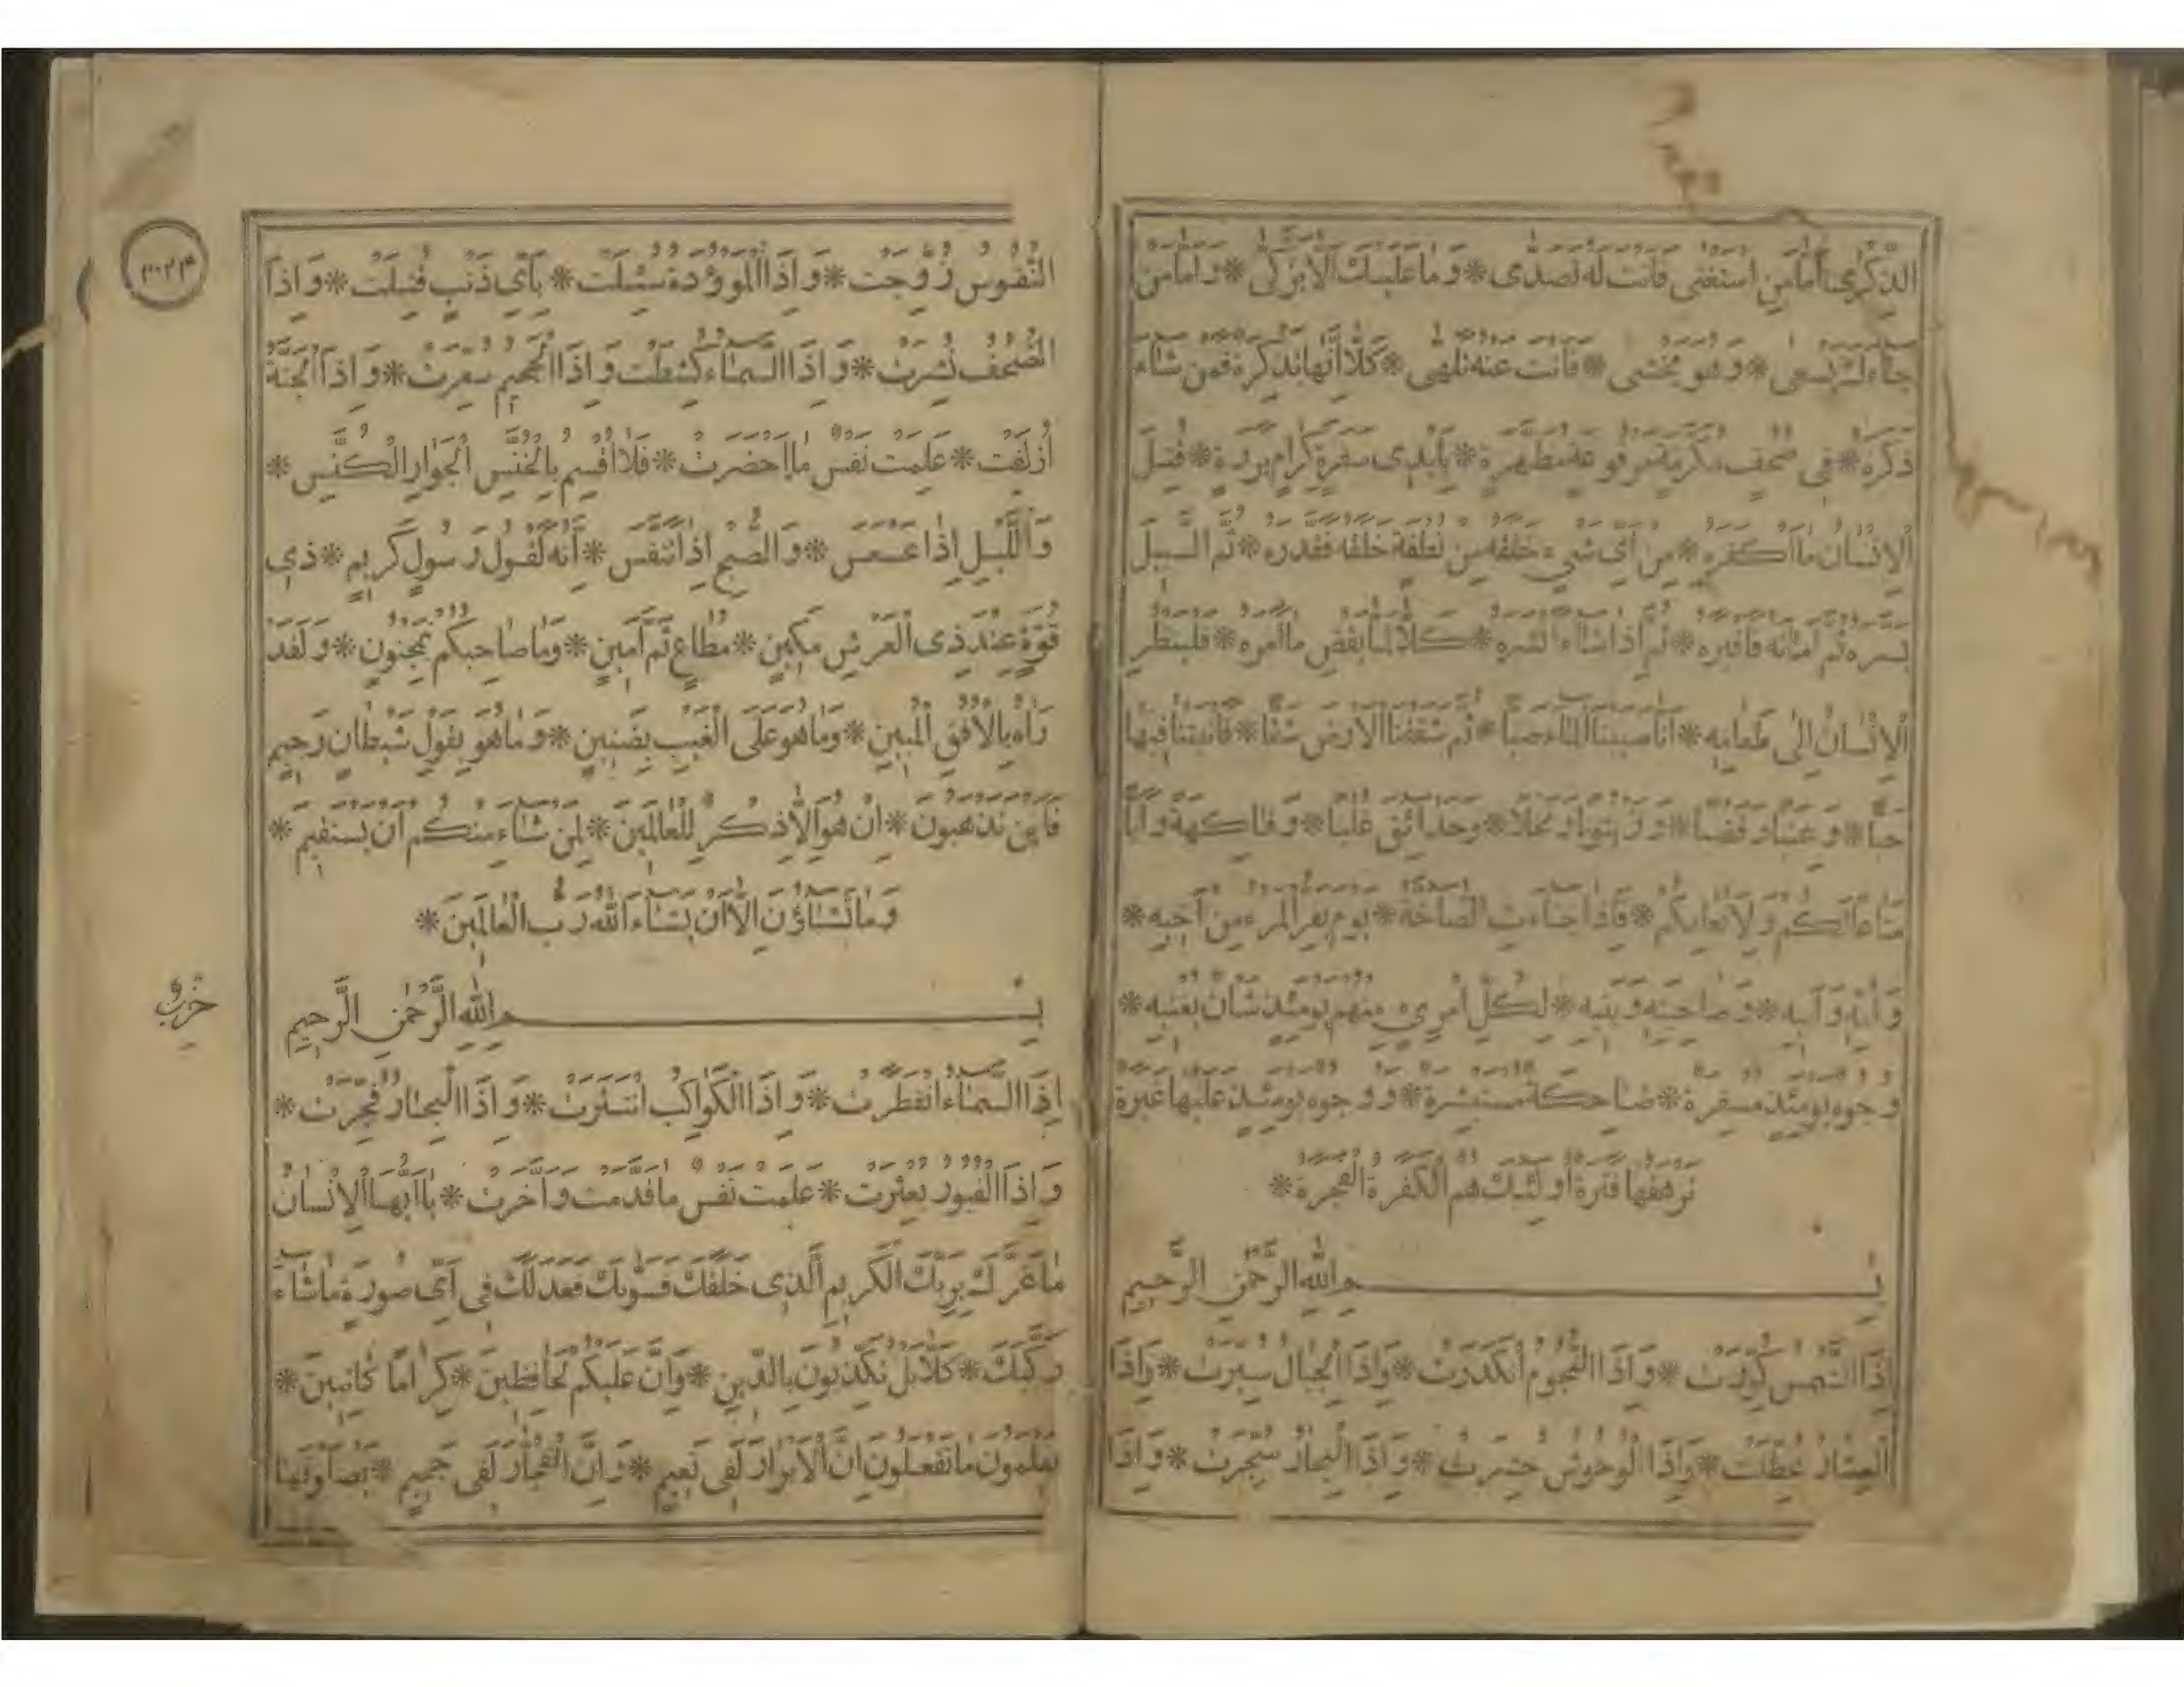 الذِّكْرٰى اَمَّا مَنِ اسْتَغْنٰى فَاَنْتَ لَهُ تَصَدّٰى * وَمَا عَلَيْكَ اَلَّا يَزَّكّٰى * وَاَمَّا مَنْ
جَآءَكَ يَسْعٰى * وَهُوَ يَخْشٰى * فَاَنْتَ عَنْهُ تَلَهّٰى * كَلَّا اِنَّهَا تَذْكِرَةٌ فَمَنْ شَآءَ
ذَكَرَهُ * فِى صُحُفٍ مُكَرَّمَةٍ مَرْفُوعَةٍ مُطَهَّرَةٍ * بِاَيْدِى سَفَرَةٍ كِرَامٍ بَرَرَةٍ * قُتِلَ
الْاِنْسَانُ مَا اَكْفَرَهُ * مِنْ اَىِّ شَىْءٍ خَلَقَهُ مِنْ نُطْفَةٍ خَلَقَهُ فَقَدَّرَهُ * ثُمَّ السَّبِيلَ
يَسَّرَهُ ثُمَّ اَمَاتَهُ فَاَقْبَرَهُ * ثُمَّ اِذَا شَآءَ اَنْشَرَهُ * كَلَّا لَمَّا يَقْضِ مَا اَمَرَهُ * فَلْيَنْظُرِ
الْاِنْسَانُ اِلٰى طَعَامِهِ * اَنَّا صَبَبْنَا الْمَآءَ صَبًّا * ثُمَّ شَقَقْنَا الْاَرْضَ شَقًّا * فَاَنْبَتْنَا فِيهَا
حَبًّا * وَعِنَبًا وَقَضْبًا * وَزَيْتُونًا وَنَخْلًا * وَحَدَآئِقَ غُلْبًا * وَفَاكِهَةً وَاَبًّا
مَتَاعًا لَكُمْ وَلِاَنْعَامِكُمْ * فَاِذَا جَآءَتِ الصَّآخَّةُ * يَوْمَ يَفِرُّ الْمَرْءُ مِنْ اَخِيهِ *
وَاُمِّهِ وَاَبِيهِ * وَصَاحِبَتِهِ وَبَنِيهِ * لِكُلِّ امْرِىءٍ مِنْهُمْ يَوْمَئِذٍ شَاْنٌ يُغْنِيهِ *
وُجُوهٌ يَوْمَئِذٍ مُسْفِرَةٌ * ضَاحِكَةٌ مُسْتَبْشِرَةٌ * وَوُجُوهٌ يَوْمَئِذٍ عَلَيْهَا غَبَرَةٌ
تَرْهَقُهَا قَتَرَةٌ اُولٰئِكَ هُمُ الْكَفَرَةُ الْفَجَرَةُ *
بِسْمِ اللّٰهِ الرَّحْمٰنِ الرَّحِيمِ
اِذَا الشَّمْسُ كُوِّرَتْ * وَاِذَا النُّجُومُ انْكَدَرَتْ * وَاِذَا الْجِبَالُ سُيِّرَتْ * وَاِذَا
الْعِشَارُ عُطِّلَتْ * وَاِذَا الْوُحُوشُ حُشِرَتْ * وَاِذَا الْبِحَارُ سُجِّرَتْ * وَاِذَا
النُّفُوسُ زُوِّجَتْ * وَاِذَا الْمَوْؤُدَةُ سُئِلَتْ * بِاَىِّ ذَنْبٍ قُتِلَتْ * وَاِذَا
الصُّحُفُ نُشِرَتْ * وَاِذَا السَّمَآءُ كُشِطَتْ وَاِذَا الْجَحِيمُ سُعِّرَتْ * وَاِذَا الْجَنَّةُ
اُزْلِفَتْ * عَلِمَتْ نَفْسٌ مَا اَحْضَرَتْ * فَلَا اُقْسِمُ بِالْخُنَّسِ الْجَوَارِ الْكُنَّسِ *
وَاللَّيْلِ اِذَا عَسْعَسَ * وَالصُّبْحِ اِذَا تَنَفَّسَ * اِنَّهُ لَقَوْلُ رَسُولٍ كَرِيمٍ * ذِى
قُوَّةٍ عِنْدَ ذِى الْعَرْشِ مَكِينٍ * مُطَاعٍ ثَمَّ اَمِينٍ * وَمَا صَاحِبُكُمْ بِمَجْنُونٍ * وَلَقَدْ
رَاٰهُ بِالْاُفُقِ الْمُبِينِ * وَمَا هُوَ عَلَى الْغَيْبِ بِضَنِينٍ * وَمَا هُوَ بِقَوْلِ شَيْطَانٍ رَجِيمٍ
فَاَيْنَ تَذْهَبُونَ * اِنْ هُوَ اِلَّا ذِكْرٌ لِلْعَالَمِينَ * لِمَنْ شَآءَ مِنْكُمْ اَنْ يَسْتَقِيمَ *
وَمَا تَشَآؤُنَ اِلَّا اَنْ يَشَآءَ اللّٰهُ رَبُّ الْعَالَمِينَ *
بِسْمِ اللّٰهِ الرَّحْمٰنِ الرَّحِيمِ
اِذَا السَّمَآءُ انْفَطَرَتْ * وَاِذَا الْكَوَاكِبُ انْتَثَرَتْ * وَاِذَا الْبِحَارُ فُجِّرَتْ *
وَاِذَا الْقُبُورُ بُعْثِرَتْ * عَلِمَتْ نَفْسٌ مَا قَدَّمَتْ وَاَخَّرَتْ * يَا اَيُّهَا الْاِنْسَانُ
مَا غَرَّكَ بِرَبِّكَ الْكَرِيمِ الَّذِى خَلَقَكَ فَسَوّٰيكَ فَعَدَلَكَ فِى اَىِّ صُورَةٍ مَا شَآءَ
رَكَّبَكَ * كَلَّا بَلْ تُكَذِّبُونَ بِالدِّينِ * وَاِنَّ عَلَيْكُمْ لَحَافِظِينَ * كِرَامًا كَاتِبِينَ *
يَعْلَمُونَ مَا تَفْعَلُونَ اِنَّ الْاَبْرَارَ لَفِى نَعِيمٍ * وَاِنَّ الْفُجَّارَ لَفِى جَحِيمٍ * يَصْلَوْنَهَا